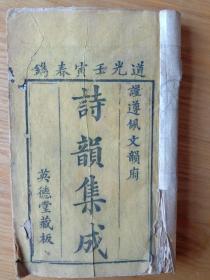 道光壬寅春鐫
謹遵佩文韻府
詩韻集成
英德堂藏板